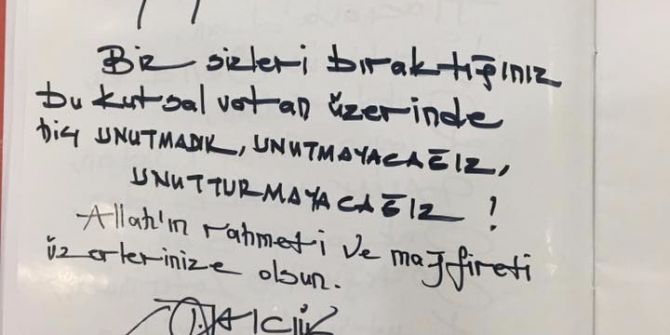 Biz sizleri bıraktığınız
bu kutsal vatan üzerinde
hiç UNUTMADIK, UNUTMAYACAĞIZ,
UNUTTURMAYACAĞIZ !
Allah'ın rahmeti ve mağfireti
üzerlerinize olsun.